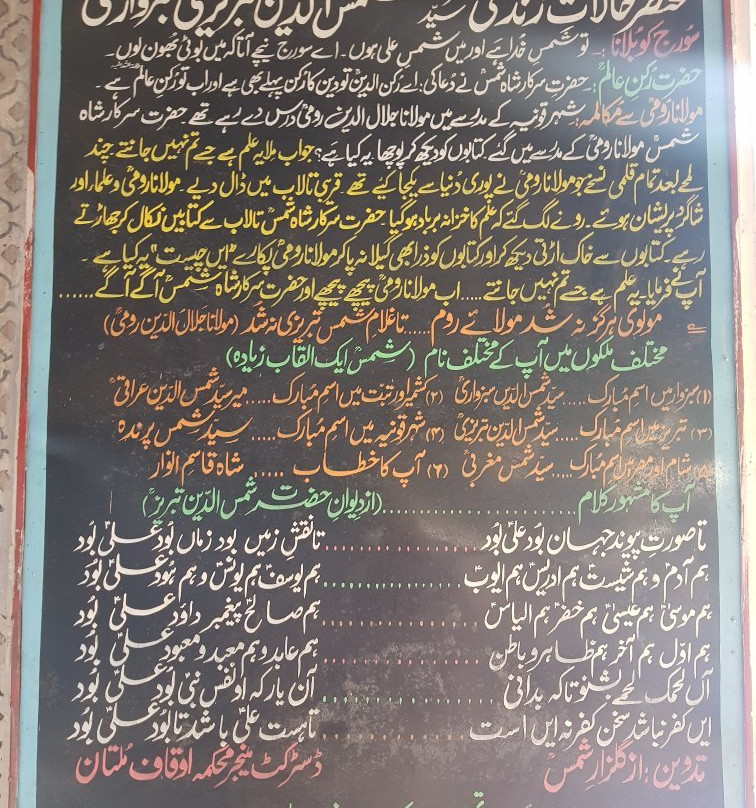 مختصر حالات زندگی سید شمس الدین تبریزی سبزواری
سورج کو بلانا :۔ تو شمسِ خدا ہے اور میں شمسِ علی ہوں۔ اے سورج نیچے آ تا کہ میں بوٹی بھون لوں۔
حضرت رکنِ عالمؒ :۔ حضرت سرکار شاہ شمسؒ نے دُعا کی: اے رکن الدینؒ تو دین کا رکن پہلے بھی ہے اور اب تو رکنِ عالم ہے۔
مولانا رومیؒ سے مکالمہ: شہر قونیہ کے مدرسے میں مولانا جلال الدین رومیؒ درس دے رہے تھے۔ حضرت سرکار شاہ
شمسؒ مولانا رومیؒ کے مدرسے میں گئے۔ کتابوں کو دیکھ کر پوچھا یہ کیا ہے؟ جواب ملا یہ علم ہے جسے تم نہیں جانتے۔ چند
لمحے بعد تمام قلمی نسخے جو مولانا رومیؒ نے پوری دُنیا سے یکجا کیے تھے۔ قریبی تالاب میں ڈال دیے۔ مولانا رومیؒ و علماء اور
شاگرد پریشان ہوئے۔ رونے لگ گئے کہ علم کا خزانہ برباد ہو گیا۔ حضرت سرکار شاہ شمسؒ تالاب سے کتابیں نکال کر جھاڑتے
رہے۔ کتابوں سے خاک اڑتی دیکھ کر اور کتابوں کو ذرا بھی گیلا نہ پا کر مولانا رومیؒ پکارے "ایں چیست" یہ کیا ہے۔
آپؒ نے فرمایا۔ یہ علم ہے جسے تم نہیں جانتے ..... اب مولانا رومیؒ پیچھے پیچھے اور حضرت سرکار شاہ شمسؒ آگے آگے ......
مولوی ہرگز نہ شد مولائے روم ..... تا غلامِ شمس تبریزی نہ شد (مولانا جلال الدین رومیؒ)
مختلف ملکوں میں آپ کے مختلف نام (شمسؒ ایک القاب زیادہ)
(۱) سبزوار میں اسم مُبارک ..... سید شمس الدین سبزواریؒ (۲) کشمیر اور تبت میں اسم مُبارک ..... میر سید شمس الدین عراقیؒ
(۳) تبریز میں اسم مُبارک ..... سید شمس الدین تبریزیؒ (۴) شہر قونیہ میں اسم مُبارک ..... سید شمس پرندہ
(۵) شام اور مصر میں اسم مُبارک ..... سید شمس مغربیؒ (۶) آپ کا خطاب ...... شاہ قاسم انوار
آپ کا مشہور کلام ...................... (از دیوانِ حضرت شمس الدین تبریزؒ)
تا صورت پیوند جہان بُود علیؑ بُود .......... تا نقش زمیں بود زماں بُود علیؑ بُود
ہم آدمؑ و ہم شیثؑ ہم ادریسؑ ہم ایوبؑ .......... ہم یوسفؑ ہم یونسؑ و ہم ہودؑ علیؑ بُود
ہم موسیٰؑ ہم عیسیٰؑ ہم خضرؑ ہم الیاسؑ .......... ہم صالحؑ پیغمبر داؤدؑ علیؑ بُود
ہم اوّل ہم آخر ہم ظاہر و باطن .......... ہم عابد و ہم معبد و معبود علیؑ بُود
آں لحمک لحمی بشنو تا کہ بدانی .......... آن یار کہ او نفس نبیؐ بُود علیؑ بُود
ایں کفر نباشد سخن کفر نہ ایں است .......... تا ہست علیؑ باشد تا بُود علیؑ بُود
تدوین: از گلزارِ شمسؒ ڈسٹرکٹ مینجر محکمہ اوقاف مُلتان